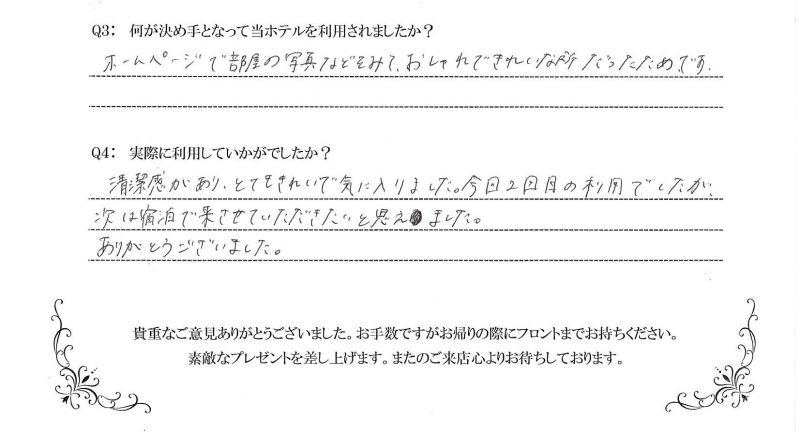 Q3： 何が決め手となって当ホテルを利用されましたか？
ホームページで部屋の写真などをみて、おしゃれできれいな所だったためです。
Q4： 実際に利用していかがでしたか？
清潔感があり、とてもきれいで気に入りました。今日2回目の利用でしたが、
次は宿泊で来させていただきたいと思えました。
ありがとうございました。
貴重なご意見ありがとうございました。お手数ですがお帰りの際にフロントまでお持ちください。
素敵なプレゼントを差し上げます。またのご来店心よりお待ちしております。